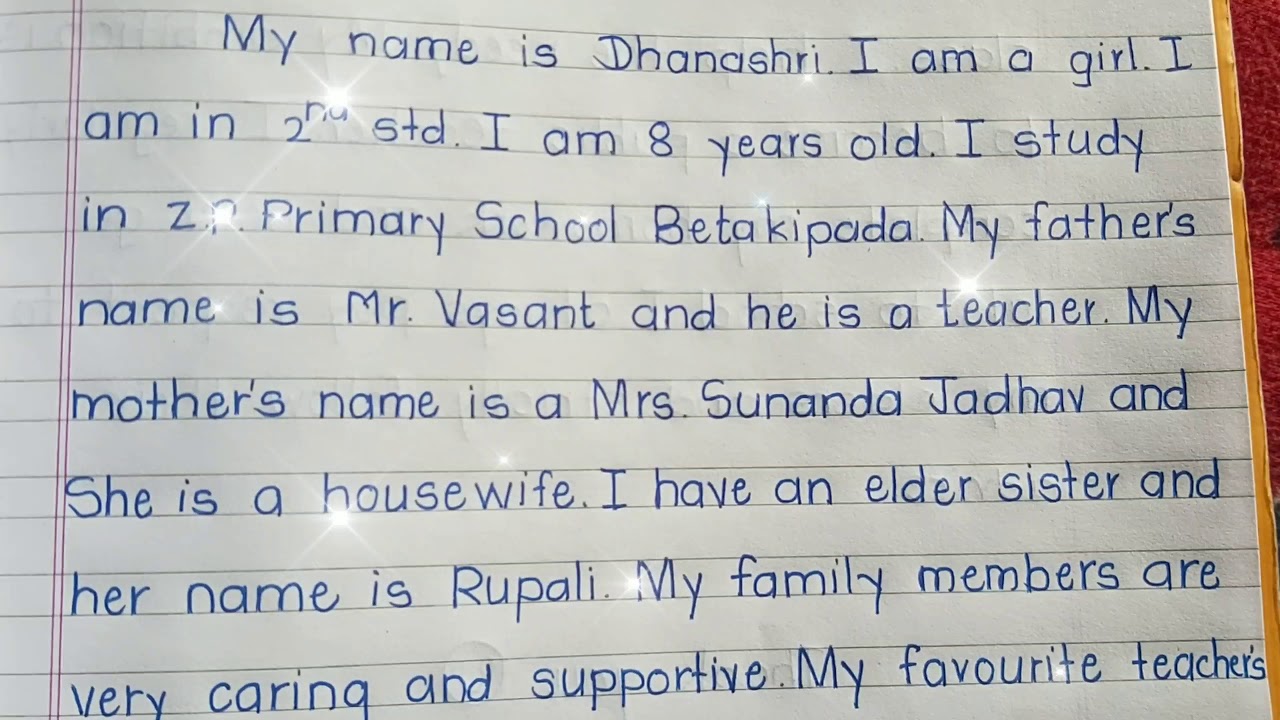 My name is Dhanashri. I am a girl. I
am in 2nd std. I am 8 years old. I study
in Z.P. Primary School Betakipada. My father's
name is Mr. Vasant and he is a teacher. My
mother's name is a Mrs. Sunanda Jadhav and
She is a housewife. I have an elder sister and
her name is Rupali. My family members are
very caring and supportive. My favourite teacher's